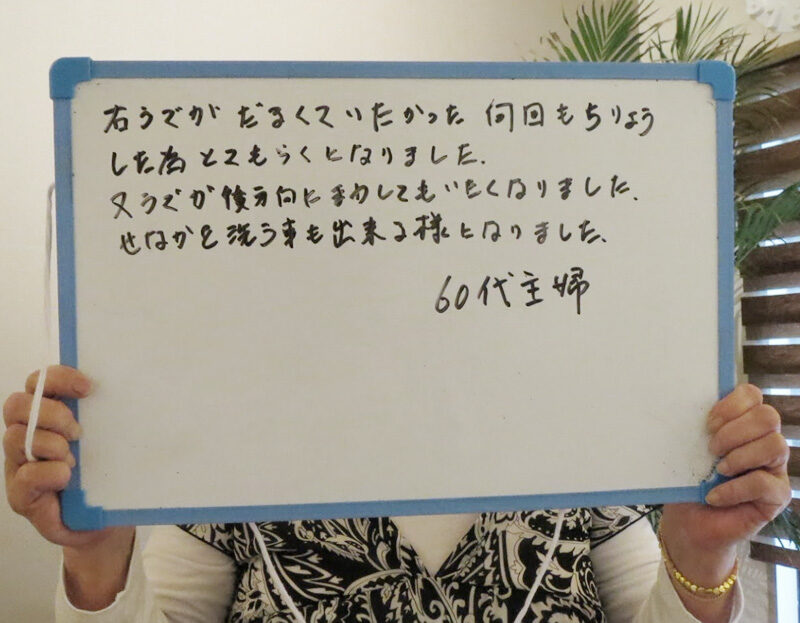 右うでが だるくていたかった 何回もちりょう
した為 とてもらくになりました.
又うでが後方向に動してもいたくなりました.
せなかを洗う事も出来る様になりました.
60代主婦